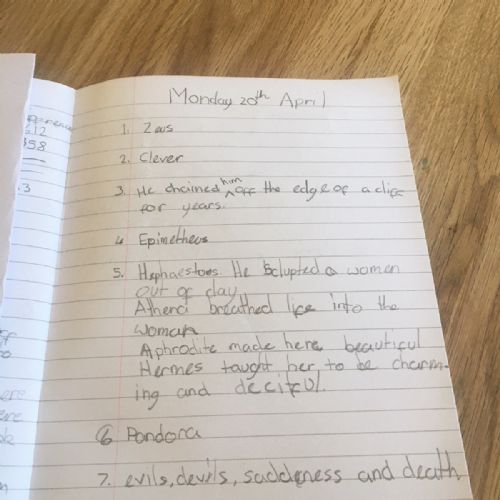 Monday 20th April
1. Zeus
2. Clever
3. He chained him off the edge of a cliff
for years.
4. Epimetheus
5. Hephaestoes He sclupted a women
out of clay
Athena breathed life into the
woman
Aphrodite made here beautiful
Hermes taught her to be charm-
ing and decitful.
6 Pandora
7. evils, devils, saddeness and death
612
358
.3